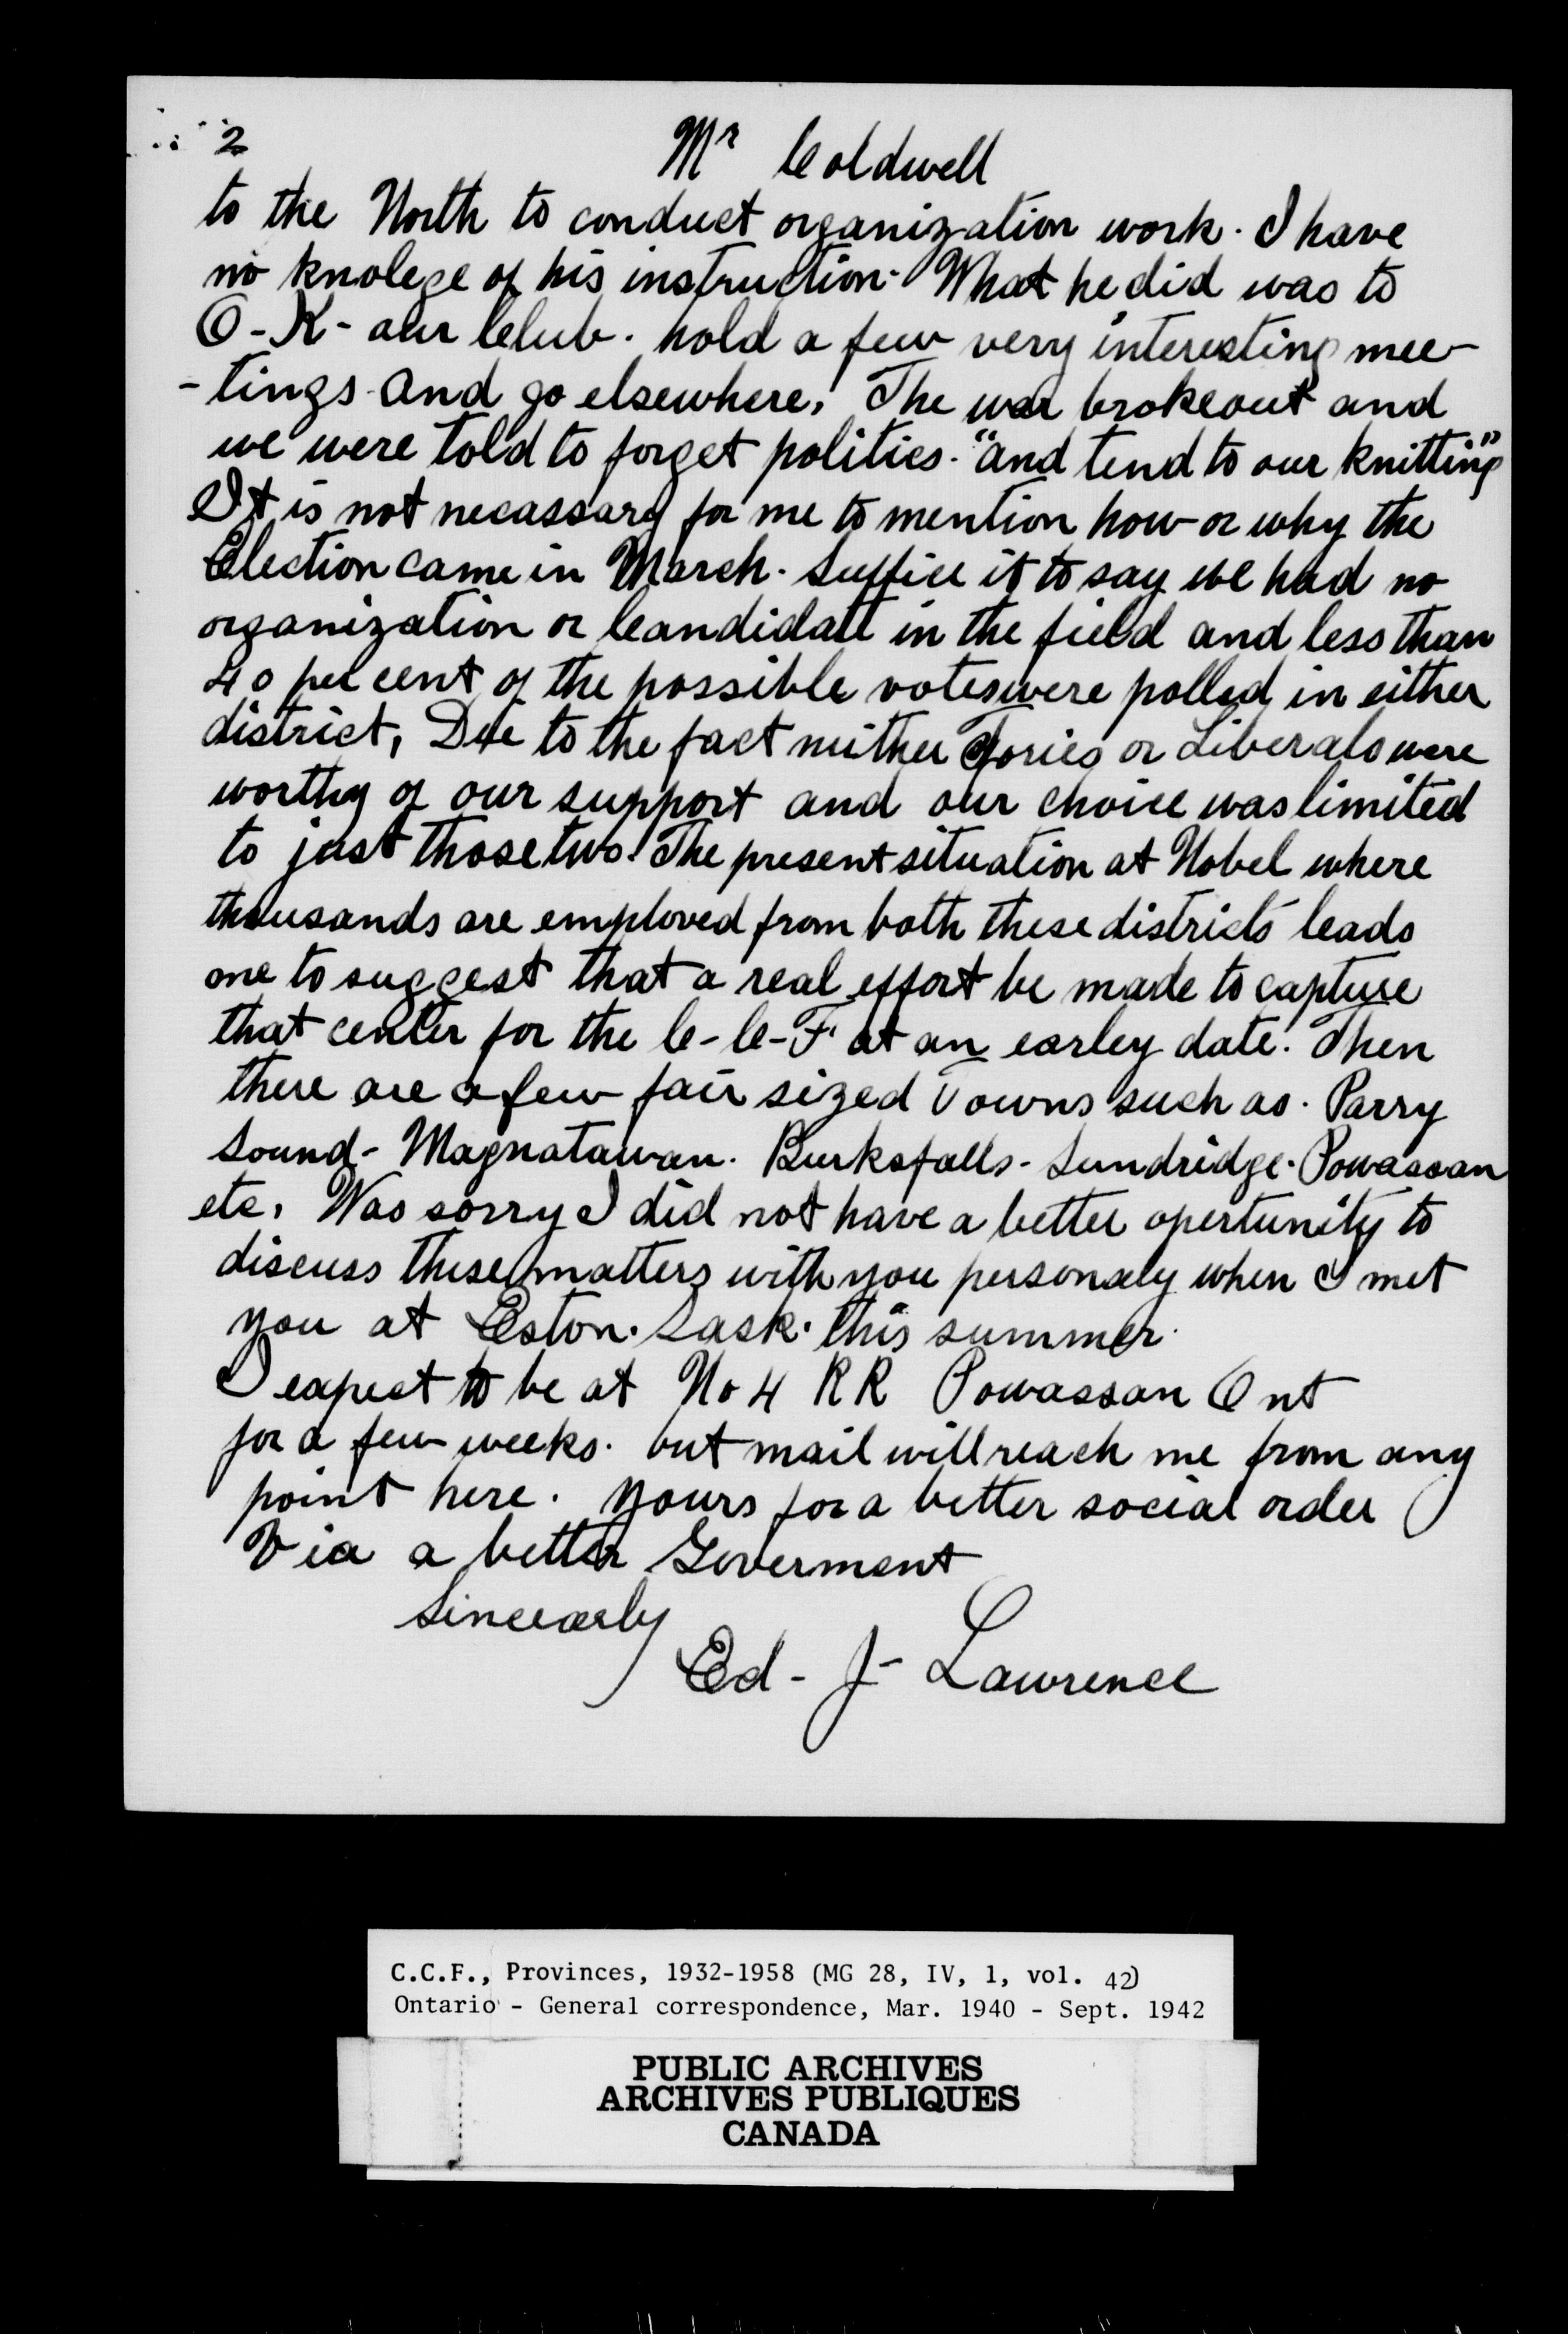 2
Mr Coldwell
to the North to conduct organization work. I have
no knolege of his instruction. What he did was to
O-K- our Club. hold a few very interesting mee-
-tings and go elsewhere. The war brokeout and
we were told to forget politics. "and tend to our knitting"
It is not necassary for me to mention how or why the
Election came in March. Suffice it to say we had no
organization or Candidate in the field and less than
40 per cent of the possible votes were polled in either
district, Due to the fact neither Tories or Liberals were
worthy of our support and our choice was limited
to just those two. The present situation at Nobel where
thousands are employed from both these districts leads
me to suggest that a real effort be made to capture
that center for the C-C-F at an earley date. Then
there are a few fair sized Towns such as. Parry
Sound- Magnatawan. Burksfalls- Sundridge. Powassan
etc. Was sorry I did not have a better opertunity to
discuss these matters with you personaly when I met
you at Eston. Sask. this summer.
I expect to be at No 4 RR Powassan Ont
for a few weeks. but mail will reach me from any
point here. Yours for a better social order
Via a better Goverment
Sincearly
Ed- J- Lawrence
C.C.F., Provinces, 1932-1958 (MG 28, IV, 1, vol. 42)
Ontario - General correspondence, Mar. 1940 - Sept. 1942
PUBLIC ARCHIVES
ARCHIVES PUBLIQUES
CANADA